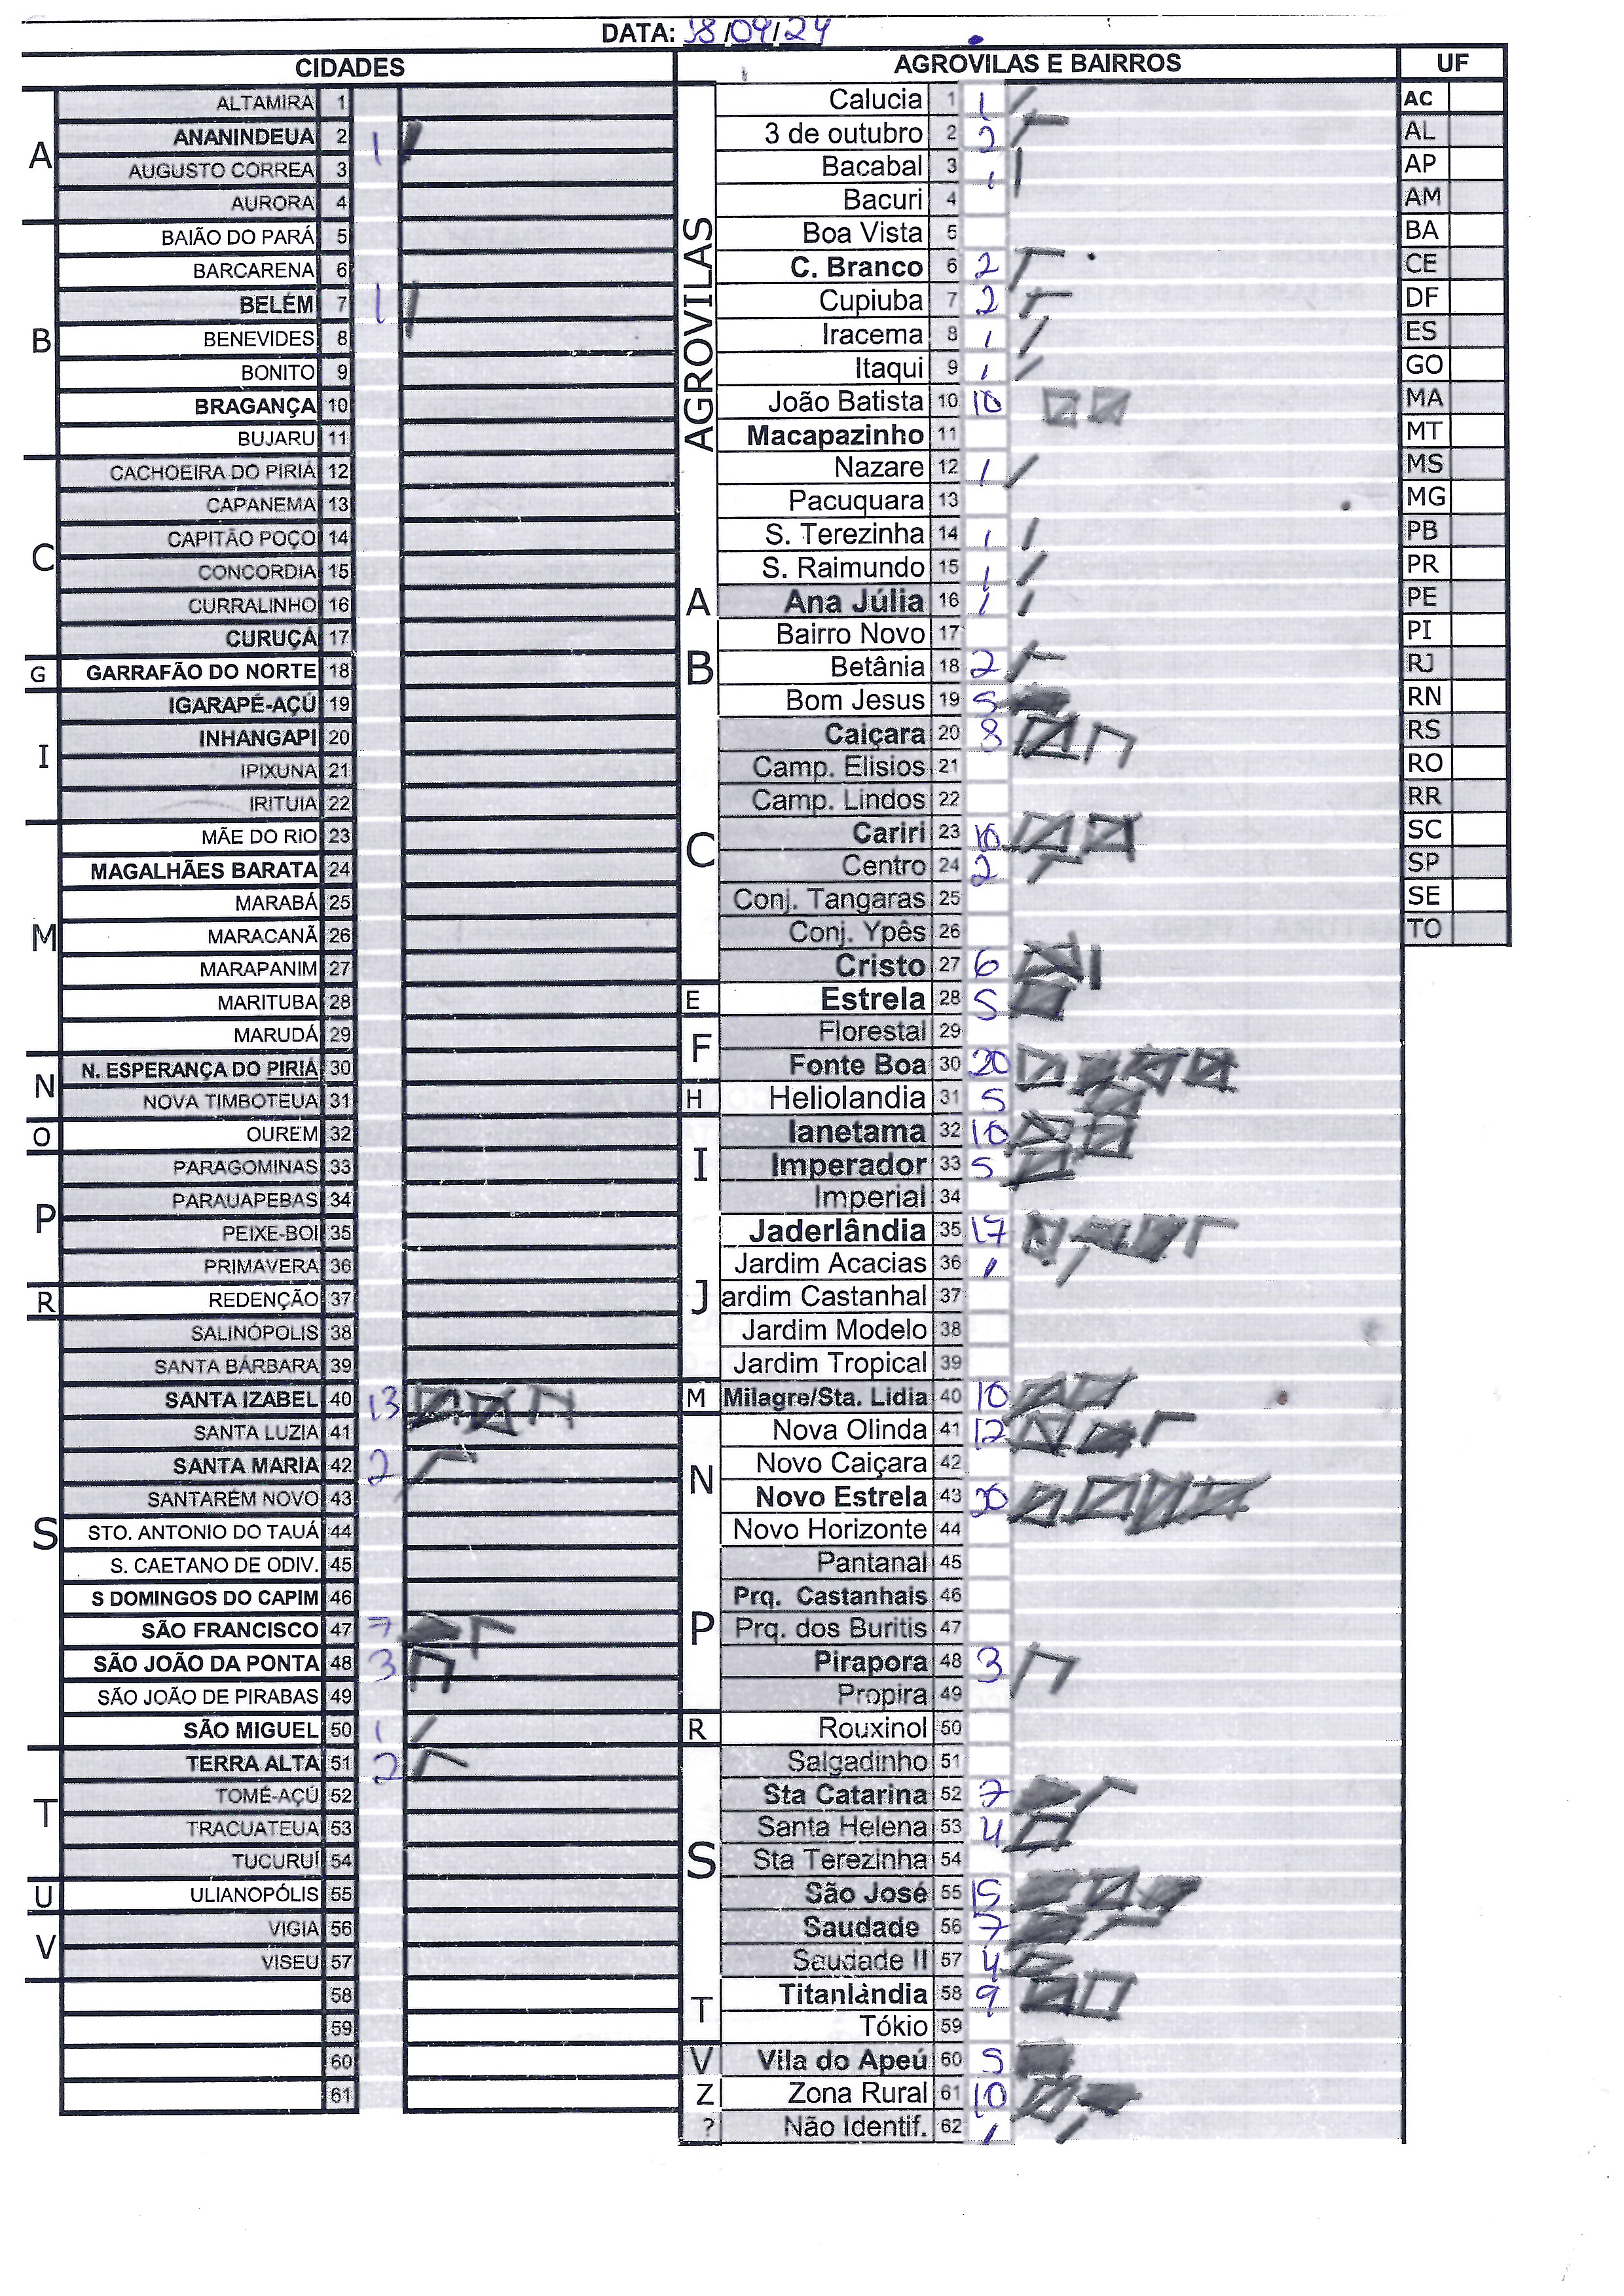 DATA: 18/09/24
CIDADES
A
ALTAMIRA 1
ANANINDEUA 2 1
AUGUSTO CORREA 3
AURORA 4
B
BAIÃO DO PARÁ 5
BARCARENA 6
BELÉM 7 1
BENEVIDES 8
BONITO 9
BRAGANÇA 10
BUJARU 11
C
CACHOEIRA DO PIRIÁ 12
CAPANEMA 13
CAPITÃO POÇO 14
CONCORDIA 15
CURRALINHO 16
CURUÇÁ 17
G
GARRAFÃO DO NORTE 18
I
IGARAPÉ-AÇÚ 19
INHANGAPI 20
IPIXUNA 21
IRITUIA 22
M
MÃE DO RIO 23
MAGALHÃES BARATA 24
MARABÁ 25
MARACANÃ 26
MARAPANIM 27
MARITUBA 28
MARUDÁ 29
N
N. ESPERANÇA DO PIRIÁ 30
NOVA TIMBOTEUA 31
O
OUREM 32
P
PARAGOMINAS 33
PARAUAPEBAS 34
PEIXE-BOI 35
PRIMAVERA 36
R
REDENÇÃO 37
S
SALINÓPOLIS 38
SANTA BÁRBARA 39
SANTA IZABEL 40 13
SANTA LUZIA 41
SANTA MARIA 42 2
SANTARÉM NOVO 43
STO. ANTONIO DO TAUÁ 44
S. CAETANO DE ODIV. 45
S DOMINGOS DO CAPIM 46
SÃO FRANCISCO 47 7
SÃO JOÃO DA PONTA 48 3
SÃO JOÃO DE PIRABAS 49
SÃO MIGUEL 50 1
T
TERRA ALTA 51 2
TOMÉ-AÇÚ 52
TRACUATEUA 53
TUCURUÍ 54
U
ULIANOPÓLIS 55
V
VIGIA 56
VISEU 57
58
59
60
61
AGROVILAS E BAIRROS
AGROVILAS
Calucia 1 1
3 de outubro 2 2
Bacabal 3 1
Bacuri 4
Boa Vista 5
C. Branco 6 2
Cupiuba 7 2
Iracema 8 1
Itaqui 9 1
João Batista 10 10
Macapazinho 11
Nazare 12 1
Pacuquara 13
S. Terezinha 14 1
S. Raimundo 15 1
A
Ana Júlia 16 1
B
Bairro Novo 17
Betânia 18 2
Bom Jesus 19 5
C
Caiçara 20 8
Camp. Elisios 21
Camp. Lindos 22
Cariri 23 10
Centro 24 2
Conj. Tangaras 25
Conj. Ypês 26
Cristo 27 6
E
Estrela 28 5
F
Florestal 29
Fonte Boa 30 20
H
Heliolandia 31 5
I
Ianetama 32 10
Imperador 33 5
Imperial 34
J
Jaderlândia 35 17
Jardim Acacias 36 1
ardim Castanhal 37
Jardim Modelo 38
Jardim Tropical 39
M
Milagre/Sta. Lidia 40 10
N
Nova Olinda 41 12
Novo Caiçara 42
Novo Estrela 43 20
Novo Horizonte 44
P
Pantanal 45
Prq. Castanhais 46
Prq. dos Buritis 47
Pirapora 48 3
Propira 49
R
Rouxinol 50
S
Salgadinho 51
Sta Catarina 52 7
Santa Helena 53 4
Sta Terezinha 54
São José 55 15
Saudade 56 7
Saudade II 57 4
T
Titanlândia 58 9
Tókio 59
V
Vila do Apeú 60 5
Z
Zona Rural 61 10
?
Não Identif. 62 1
UF
AC
AL
AP
AM
BA
CE
DF
ES
GO
MA
MT
MS
MG
PB
PR
PE
PI
RJ
RN
RS
RO
RR
SC
SP
SE
TO